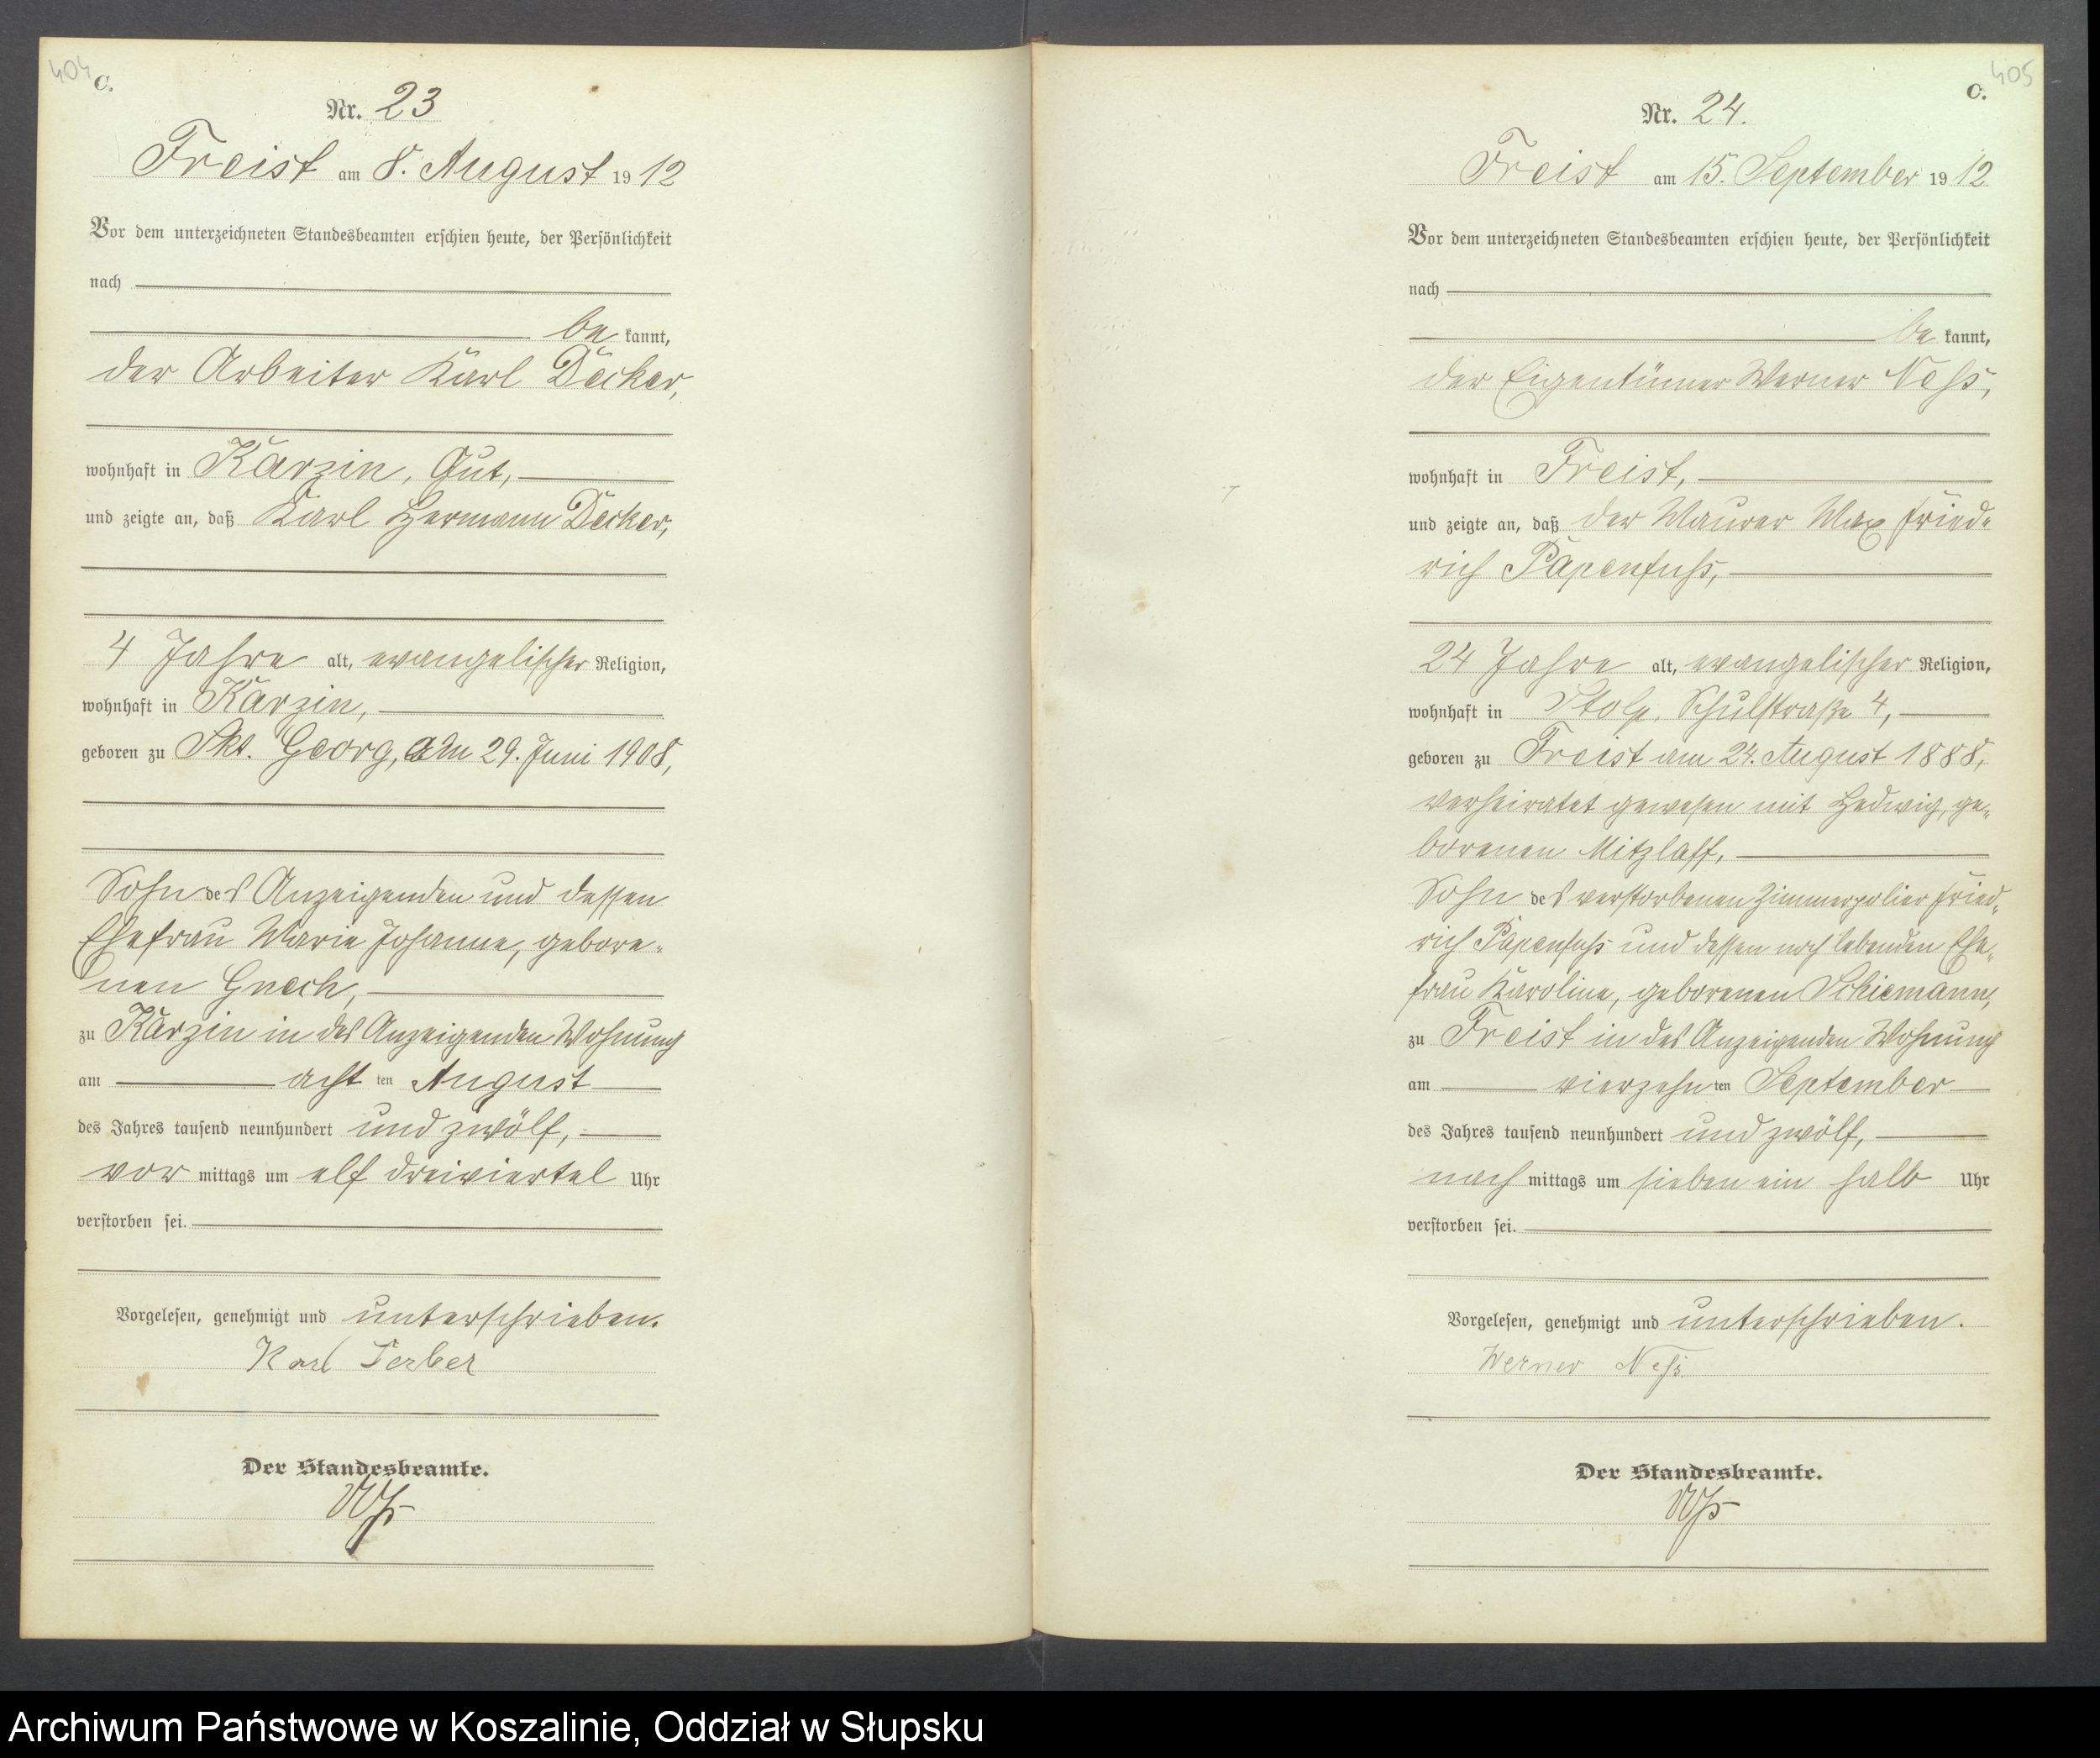 404
C.
Nr. 23
Freist am 8. August 1912
Vor dem unterzeichneten Standesbeamten erschien heute, der Persönlichkeit
nach
be kannt,
der Arbeiter Karl Decker,
wohnhaft in Karzin, Gut,
und zeigte an, daß Karl Hermann Decker,
4 Jahre alt, evangelischer Religion,
wohnhaft in Karzin,
geboren zu Skt. Georg, am 29. Juni 1908,
Sohn des Anzeigenden und dessen
Ehefrau Marie Johanne, gebore-
nen Gnech,
zu Karzin in des Anzeigenden Wohnung
am acht ten August
des Jahres tausend neunhundert und zwölf,
vor mittags um elf dreiviertel Uhr
verstorben sei.
Vorgelesen, genehmigt und unterschrieben.
Karl
Der Standesbeamte.
405
C.
Nr. 24.
Freist am 15. September 1912
Vor dem unterzeichneten Standesbeamten erschien heute, der Persönlichkeit
nach
be kannt,
der Eigentümer Werner Neß,
wohnhaft in Freist,
und zeigte an, daß der Maurer Max Friede
rich Papenfuß,
24 Jahre alt, evangelischer Religion,
wohnhaft in Stolp, Schulstraße 4,
geboren zu Freist am 24. August 1888,
verheiratet gewesen mit Hedwig, ge-
borenen Mitzlaff,
Sohn des verstorbenen Zimmerpolier Fried-
rich Papenfuß und dessen noch lebenden Ehe-
frau Karoline, geborenen Schiemann,
zu Freist in des Anzeigenden Wohnung
am vierzehn ten September
des Jahres tausend neunhundert und zwölf,
nach mittags um sieben ein halb Uhr
verstorben sei.
Vorgelesen, genehmigt und unterschrieben.
Werner Neß
Der Standesbeamte.
Archiwum Państwowe w Koszalinie, Oddział w Słupsku